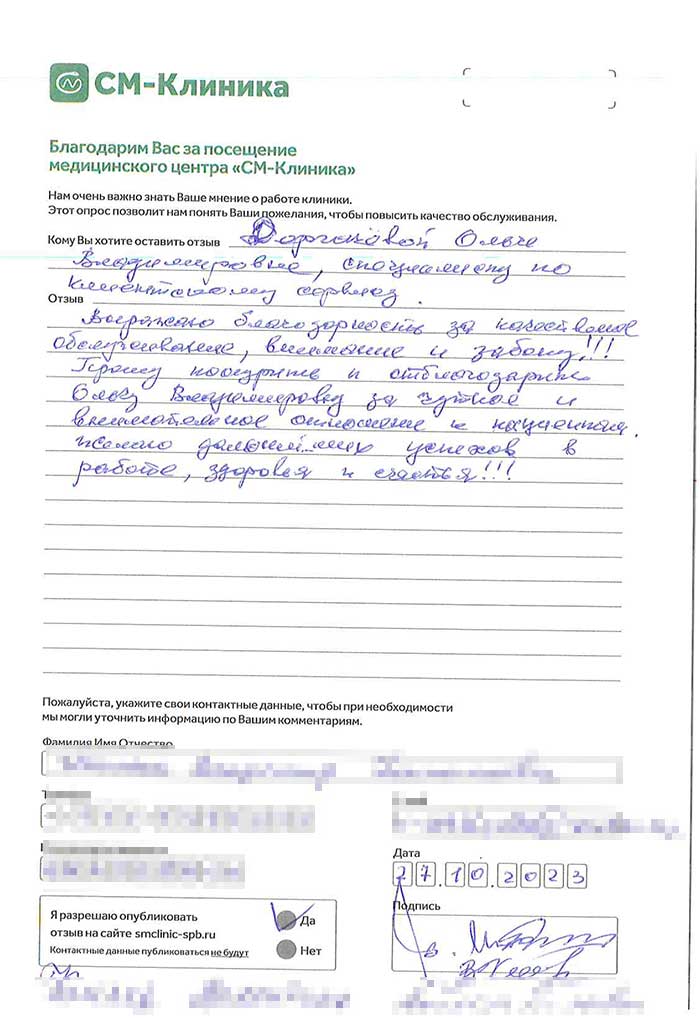 СМ-Клиника
Благодарим Вас за посещение
медицинского центра «СМ-Клиника»
Нам очень важно знать Ваше мнение о работе клиники.
Этот опрос позволит нам понять Ваши пожелания, чтобы повысить качество обслуживания.
Кому Вы хотите оставить отзыв Ольге
Владимировне, специалисту по
клиентскому сервису.
Отзыв
Выражаю благодарность за качественное
обслуживание, внимание и заботу!!!
Прошу поощрить и отблагодарить
Ольгу Владимировну за чуткое и
внимательное отношение к пациентам.
Желаю дальнейших успехов в
работе, здоровья и счастья!!!
Пожалуйста, укажите свои контактные данные, чтобы при необходимости
мы могли уточнить информацию по Вашим комментариям.
Фамилия Имя Отчество
Дата
27.10.2023
Подпись
Я разрешаю опубликовать
отзыв на сайте smclinic-spb.ru
Контактные данные публиковаться не будут
Да
Нет